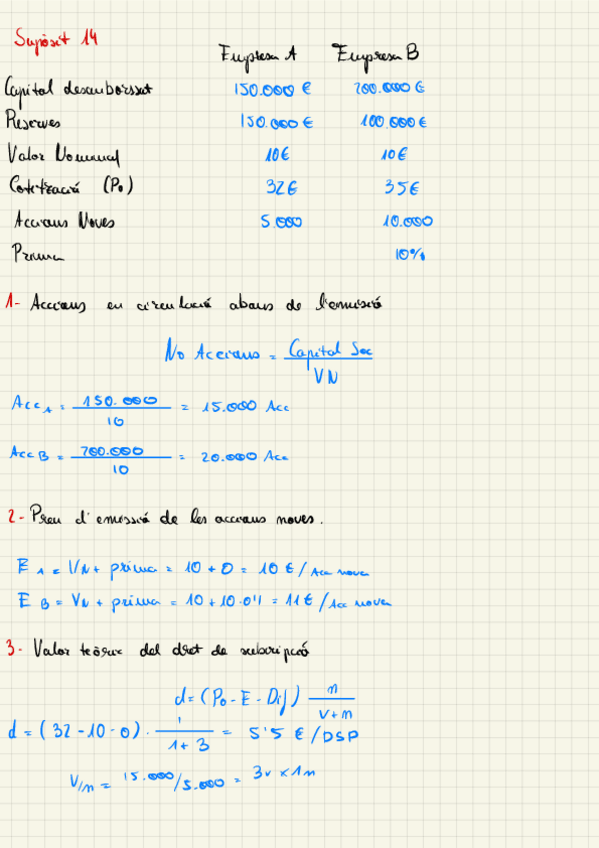 Supòsit 14
Empresa A Empresa B
Capital desemborssat 150.000 € 200.000 €
Reserves 150.000 € 100.000 €
Valor Nominal 10€ 10€
Cotització (P₀) 32€ 35€
Accions Noves 5.000 10.000
Prima 10%
1- Accions en circulació abans de l'emissió
No Accions = Capital Soc / VN
Acc A = 150.000 / 10 = 15.000 Acc
Acc B = 200.000 / 10 = 20.000 Acc
2- Preu d'emissió de les accions noves.
E A = VN + prima = 10 + 0 = 10 € / Acc nova
E B = VN + prima = 10 + 10·0'1 = 11 € / Acc nova
3- Valor teòric del dret de subscripció
d = (P₀ - E - Dif) n / v+n
d = (32 - 10 - 0) · 1 / 1+3 = 5'5 € / DSP
V/n = 15.000/5.000 = 3v x 1n